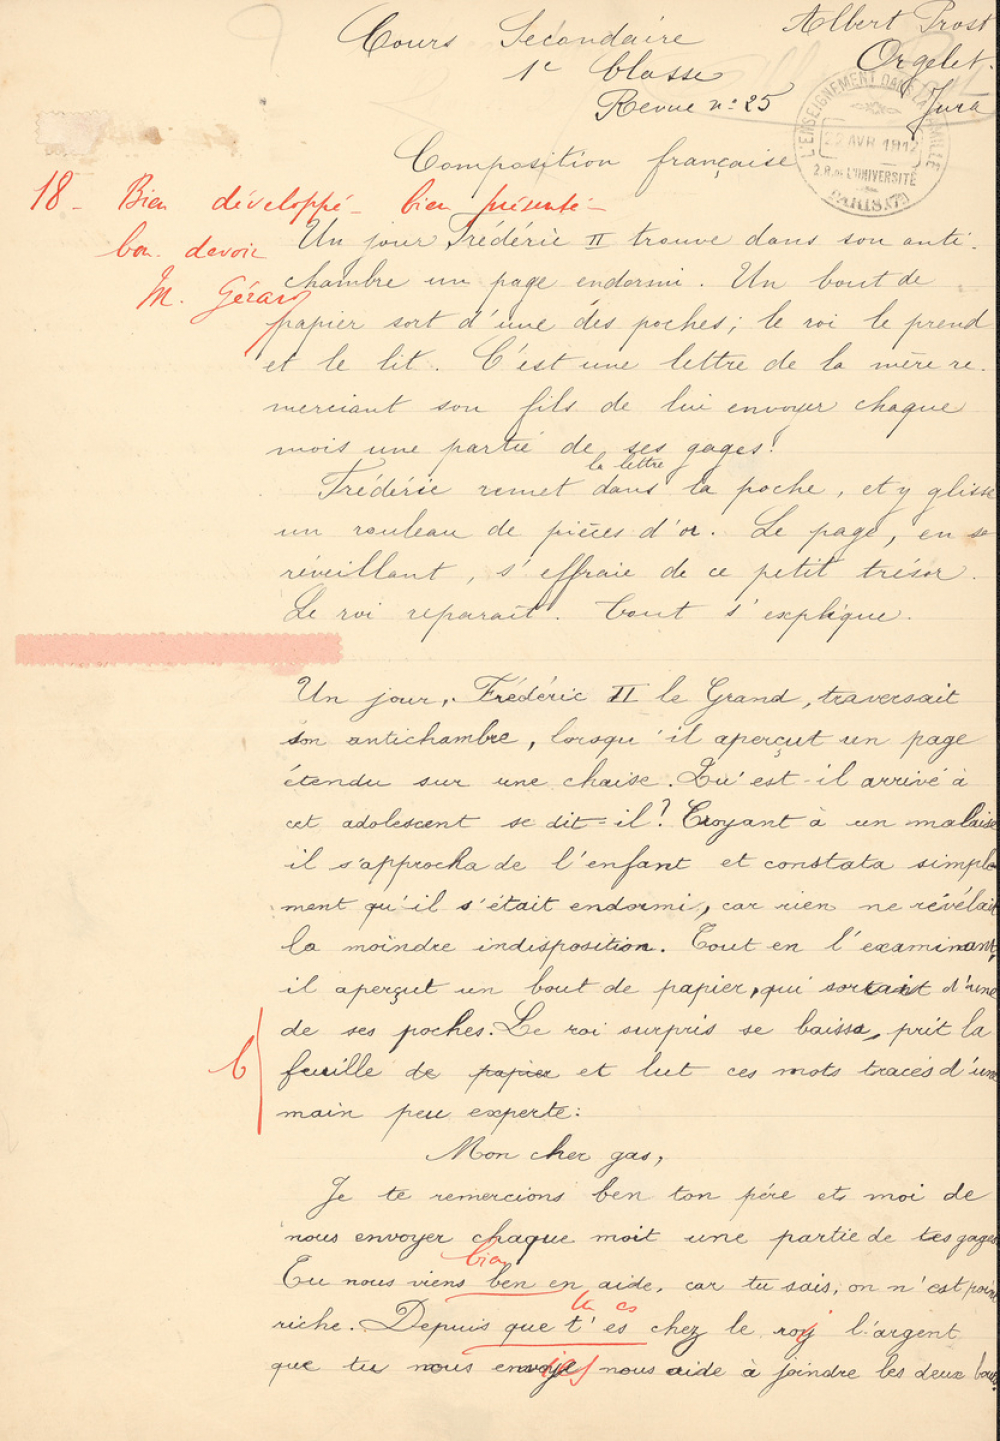 Albert Prost
Cours Secondaire
Orgelet.
1e Classe
Jura
Revue n: 25
L'ENSEIGNEMENT DANS LA FAMILLE
22 AVR 1912
2.R. de L'UNIVERSITÉ
PARIS (7e)
Composition française
18 - Bien développé - bien présenté -
bon devoir
M. Gérard
Un jour Frédéric II trouve dans son anti-
chambre un page endormi. Un bout de
papier sort d'une des poches; le roi le prend
et le lit. C'est une lettre de la mère re-
merciant son fils de lui envoyer chaque
mois une partie de ses gages!
la lettre
Frédéric remet dans la poche, et y glisse
un rouleau de pièces d'or. Le page, en se
réveillant, s'effraie de ce petit trésor.
Le roi reparait. Tout s'explique.
Un jour, Frédéric II le Grand, traversait
son antichambre, lorsqu'il aperçut un page
étendu sur une chaise. Qu'est-il arrivé à
cet adolescent se dit-il? Croyant à un malaise
il s'approcha de l'enfant et constata simple
ment qu'il s'était endormi, car rien ne révélait
la moindre indisposition. Tout en l'examinant,
il aperçut un bout de papier, qui sortait d'une
de ses poches. Le roi surpris se baissa, prit la
b
feuille de papier et lut ces mots tracés d'une
main peu experte:
Mon cher gas,
Je te remercions ben ton père et moi de
nous envoyer chaque moit une partie de tes gages
bien
Tu nous viens ben en aide, car tu sais, on n'est point
tu es
riche. Depuis que t'es chez le roy l'argent
que tu nous nous aide à joindre les deux bouts